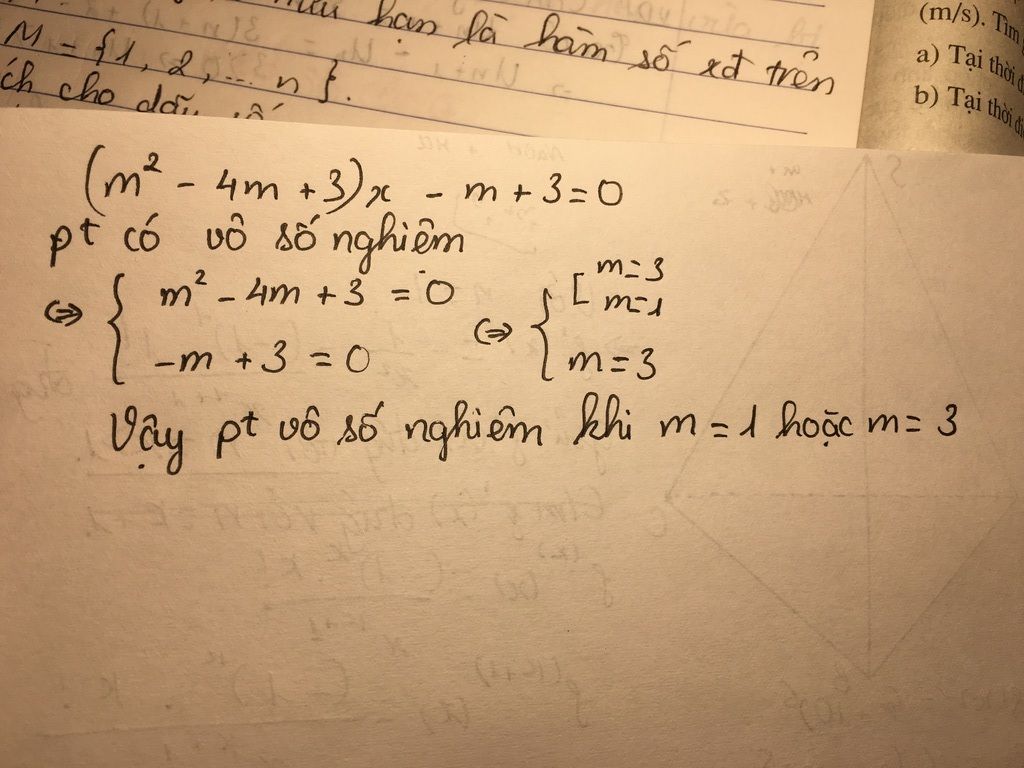 hạn là hàm số xđ trên
M = {1, 2, ... n}.
ích cho dãy số
(m/s). Tìm
a) Tại thời đ
b) Tại thời đi
(m² - 4m + 3)x - m + 3 = 0
pt có vô số nghiệm
⇔ { m² - 4m + 3 = 0 ⇔ { [ m = 3
m = 1
-m + 3 = 0 m = 3
Vậy pt vô số nghiệm khi m = 1 hoặc m = 3